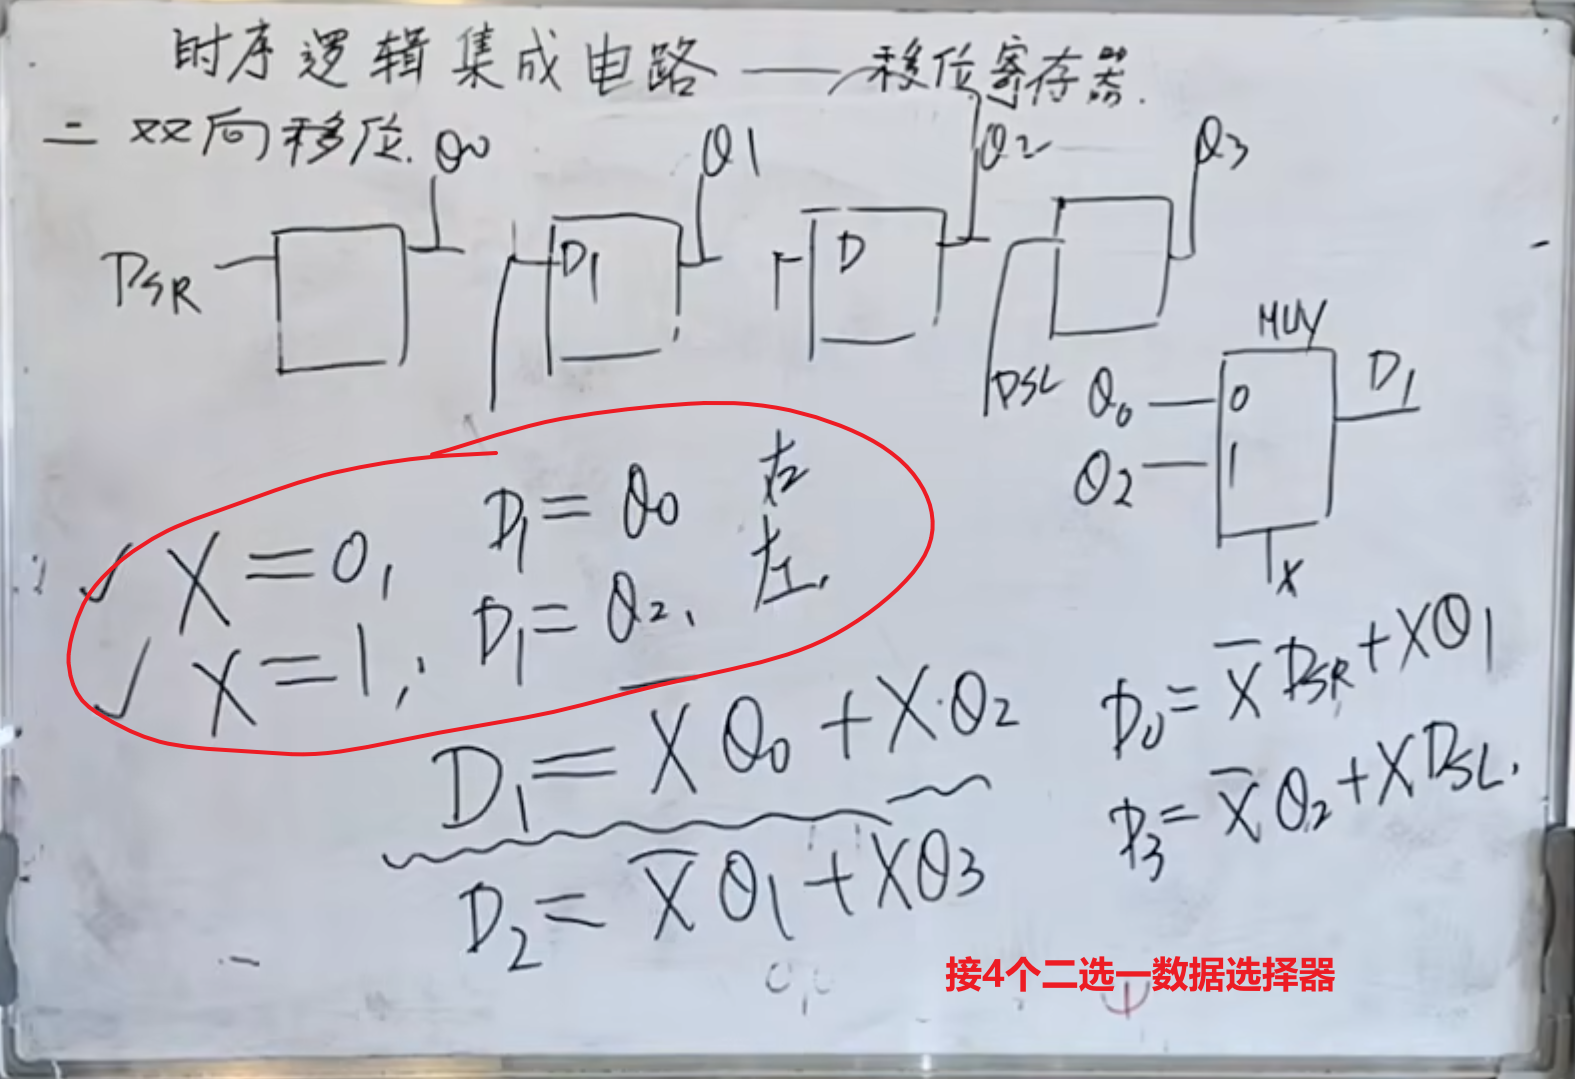 时序逻辑集成电路——移位寄存器.
二 双向移位. Q0 Q1 Q2 Q3
DSR D1 D
MUX
DSL Q0 0 D1
Q2 1
X
X=0, D1=Q0 右
X=1, D1=Q2, 左.
D1=X̅Q0+X·Q2
D2=X̅Q1+XQ3
D0=X̅DSR+XQ1
D3=X̅Q2+XDSL.
接4个二选一数据选择器